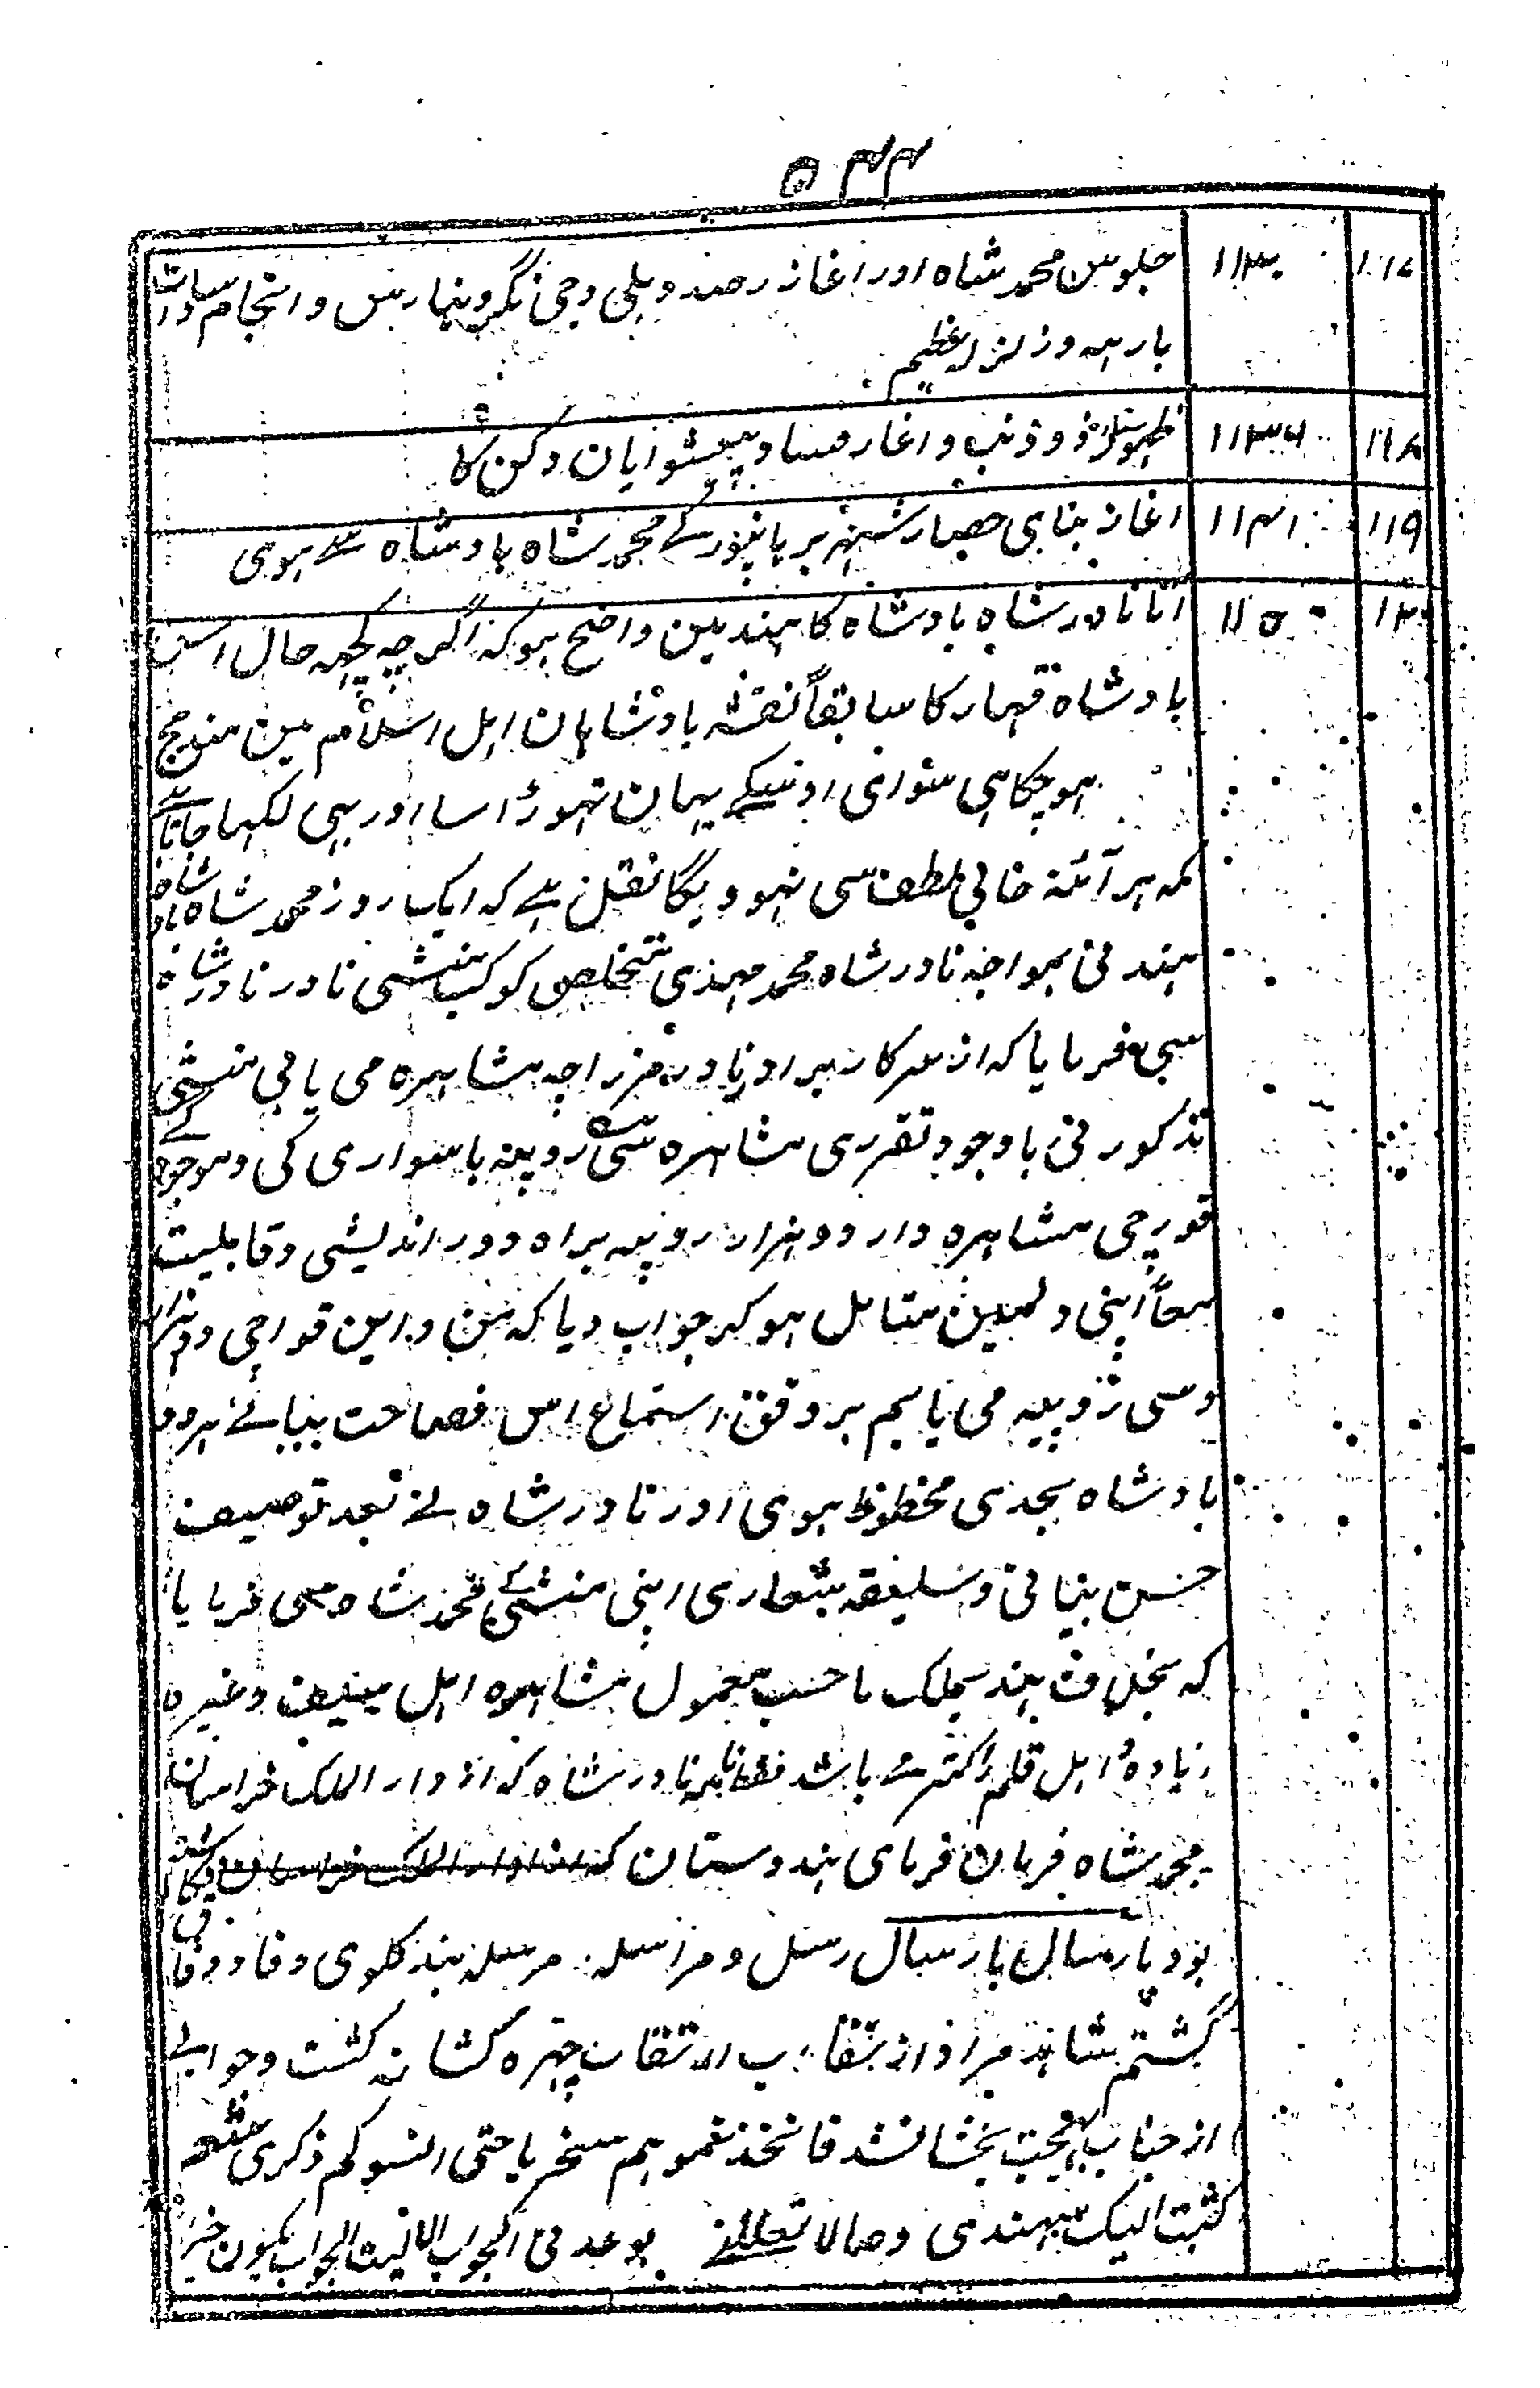 ۵۴۴
۱۱۷ ۱۱۳۰ جلوس محمد شاه اور اغاز رصد دہلی وجی نگر و بنارس و انجام سادات
بارہہ و زلزلہ عظیم
۱۱۸ ۱۱۳۶ ظہور ستارہ ذو ذنب و اغاز فساد پیشوایان دکن کا
۱۱۹ ۱۱۴۱ اغاز بنای حصار شہر برہانپور کے محمد شاہ بادشاہ سے ہوی
۱۲۰ ۱۱۵۰ آنا نادر شاہ بادشاہ کا ہند مین واضح ہو کہ اگرچہ کچہہ حال اس
بادشاہ قہار کا سابقاً نقشہ بادشاہان اہل اسلام مین مندرج
ہو چکا ہی سوای اوسکے یہان تہوڑا سا اور بہی لکہا جاتا ہے
کہ ہر آئنہ خالی لطف سی نہو ویگا نقل ہے کہ ایک روز محمد شاہ بادشاہ
ہند نی بمواجہ نادر شاہ محمد مہدی متخلص کوکب منشی نادر نادر شاہ
سی فرمایا کہ از سرکار برادر نادر میرزا چہ مشاہرہ می یابی منشی
مذکور نی باوجود تقرری مشاہرہ سی روپیہ باسواری کی و موجود کے
قورچی مشاہرہ دار دو ہزار روپیہ براہ دور اندیشی و قابلیت
معاً اپنی دلمین متامل ہوکر جواب دیا کہ من و این قورچی دو ہزار
و سی روپیہ می یابیم بر وفق استماع اس فصاحت بیانی ہر دو
بادشاہ بجدی محظوظ ہوی اور نادر شاہ نے بعد توصیف
حسن بیانی و سلیقہ شعاری اپنی منشی کے محمد شاہ سی فرمایا
کہ بخلاف ہند بملک ما حسب معمول مشاہرہ اہل سیف وغیرہ
زیادہ و اہل قلم کمتر می باشد نقل نامہ نادر شاہ کہ از دار الملک خراسان
بمحمد شاہ فرمان فرمای ہندوستان کہ از دار الملک خراسان
بود بارسال رسل و مراسلہ مرسلہ بند کلوی وفا و وفاق
گشتم شاہد مراد از نقاب ارتقاب چہرہ گشا نہ گشت و جوابی
از جناب بہجت بخشا نشد فاتخذتموہم سخریا حتی انسوکم ذکری
کتبت الیک یہندی وصالا تعللنی بوعد فی الجواب الا لیت الجواب یکون خیرا